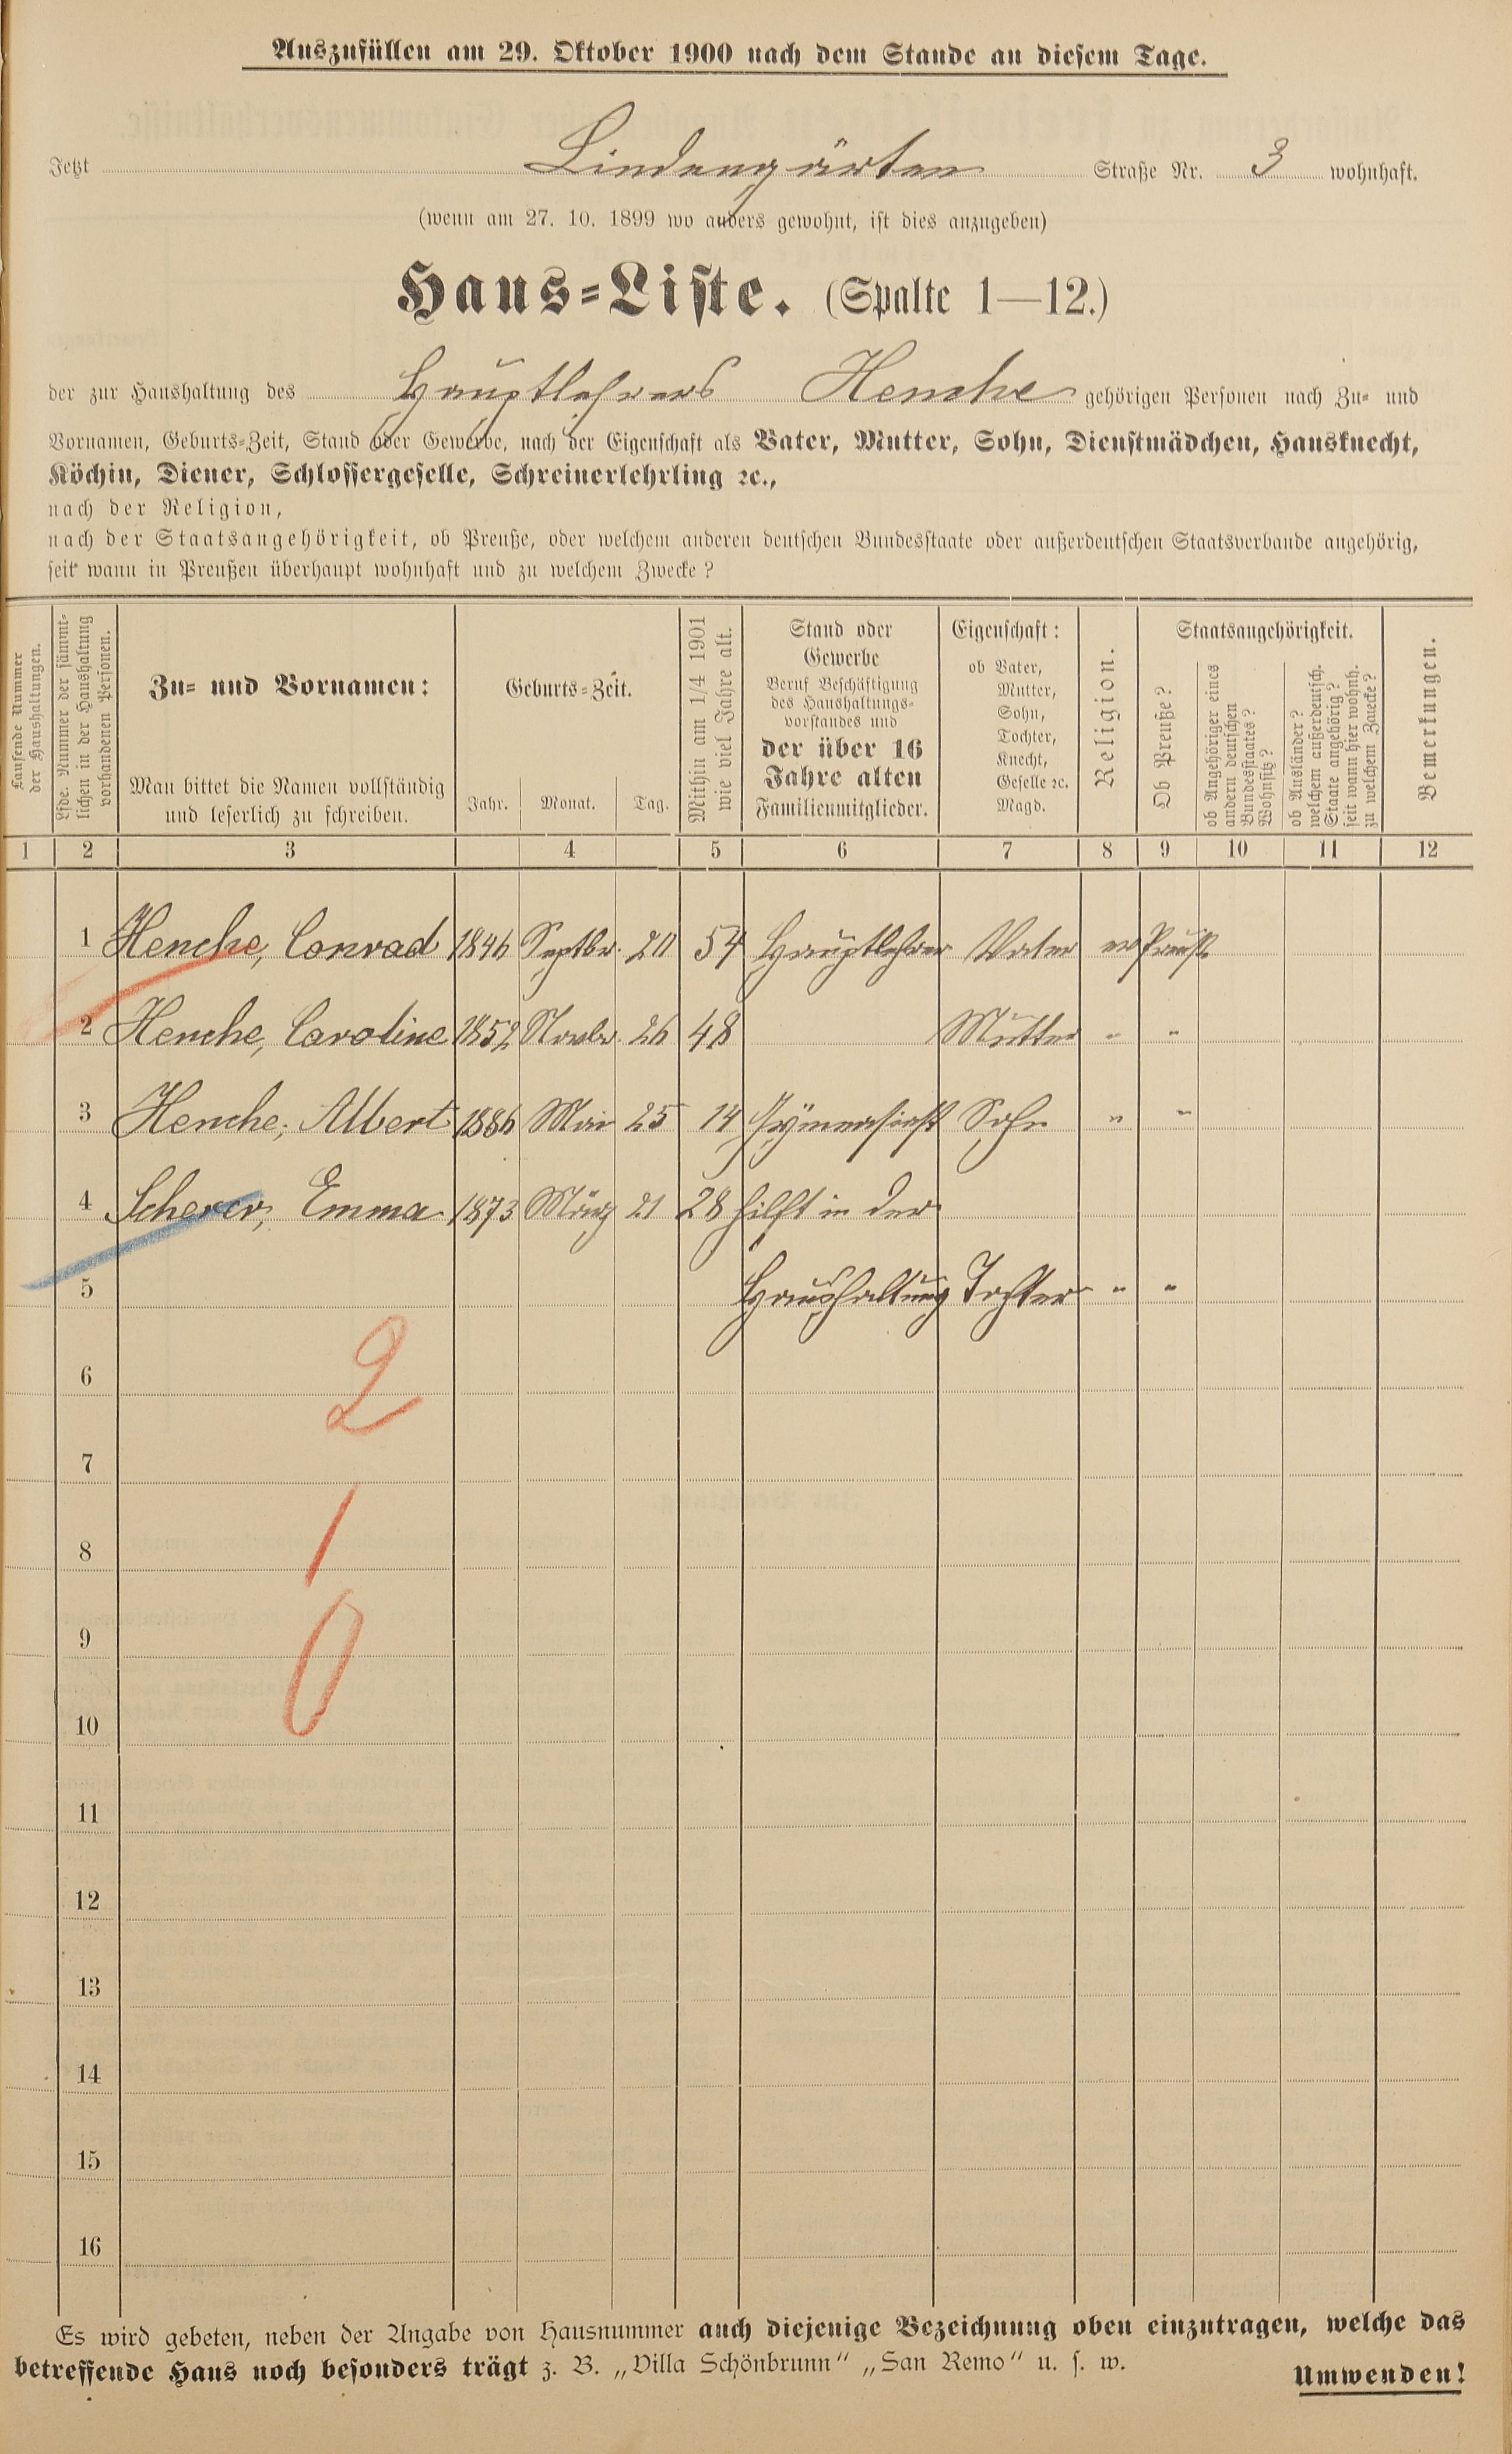 Auszufüllen am 29. Oktober 1900 nach dem Stande an diesem Tage.
Jetzt Lindengärten Straße Nr. 3 wohnhaft.
(wenn am 27. 10. 1899 wo anders gewohnt, ist dies anzugeben)
Haus-Liste. (Spalte 1—12.)
der zur Haushaltung des Hauptlehrers Henche gehörigen Personen nach Zu- und
Vornamen, Geburts-Zeit, Stand oder Gewerbe, nach der Eigenschaft als Vater, Mutter, Sohn, Dienstmädchen, Hausknecht,
Köchin, Diener, Schlossergeselle, Schreinerlehrling ꝛc.,
nach der Religion,
nach der Staatsangehörigkeit, ob Preuße, oder welchem anderen deutschen Bundesstaate oder außerdeutschen Staatsverbande angehörig,
seit wann in Preußen überhaupt wohnhaft und zu welchem Zwecke?
Laufende Nummer
der Haushaltungen.
Lfde. Nummer der sämmt-
lichen in der Haushaltung
vorhandenen Personen.
Zu- und Vornamen:
Man bittet die Namen vollständig
und leserlich zu schreiben.
Geburts-Zeit.
Jahr. Monat. Tag.
Mithin am 1/4 1901
wie viel Jahre alt.
Stand oder
Gewerbe
Beruf Beschäftigung
des Haushaltungs-
vorstandes und
der über 16
Jahre alten
Familienmitglieder.
Eigenschaft:
ob Vater,
Mutter,
Sohn,
Tochter,
Knecht,
Geselle ꝛc.
Magd.
Religion.
Staatsangehörigkeit.
Ob Preuße?
ob Angehöriger eines
andern deutschen
Bundesstaates?
Wohnsitz?
ob Ausländer?
welchem außerdeutsch.
Staate angehörig?
seit wann hier wohnh.
zu welchem Zwecke?
Bemerkungen.
1 2 3 4 5 6 7 8 9 10 11 12
1 Henche, Conrad 1846 Septbr. 20 54 Hauptlehrer Vater ev Preuße
2 Henche, Caroline 1852 Novbr. 26 48 Mutter " "
3 Henche, Albert 1886 Mai 25 14 Gymnasiast Sohn " "
4 Scherer, Emma 1873 März 21 28 hilft in der
5 Haushaltung Tochter " "
2
6
7
1
8
0
9
10
11
12
13
14
15
16
Es wird gebeten, neben der Angabe von Hausnummer auch diejenige Bezeichnung oben einzutragen, welche das
betreffende Haus noch besonders trägt z. B. „Villa Schönbrunn“ „San Remo“ u. s. w.
Umwenden!